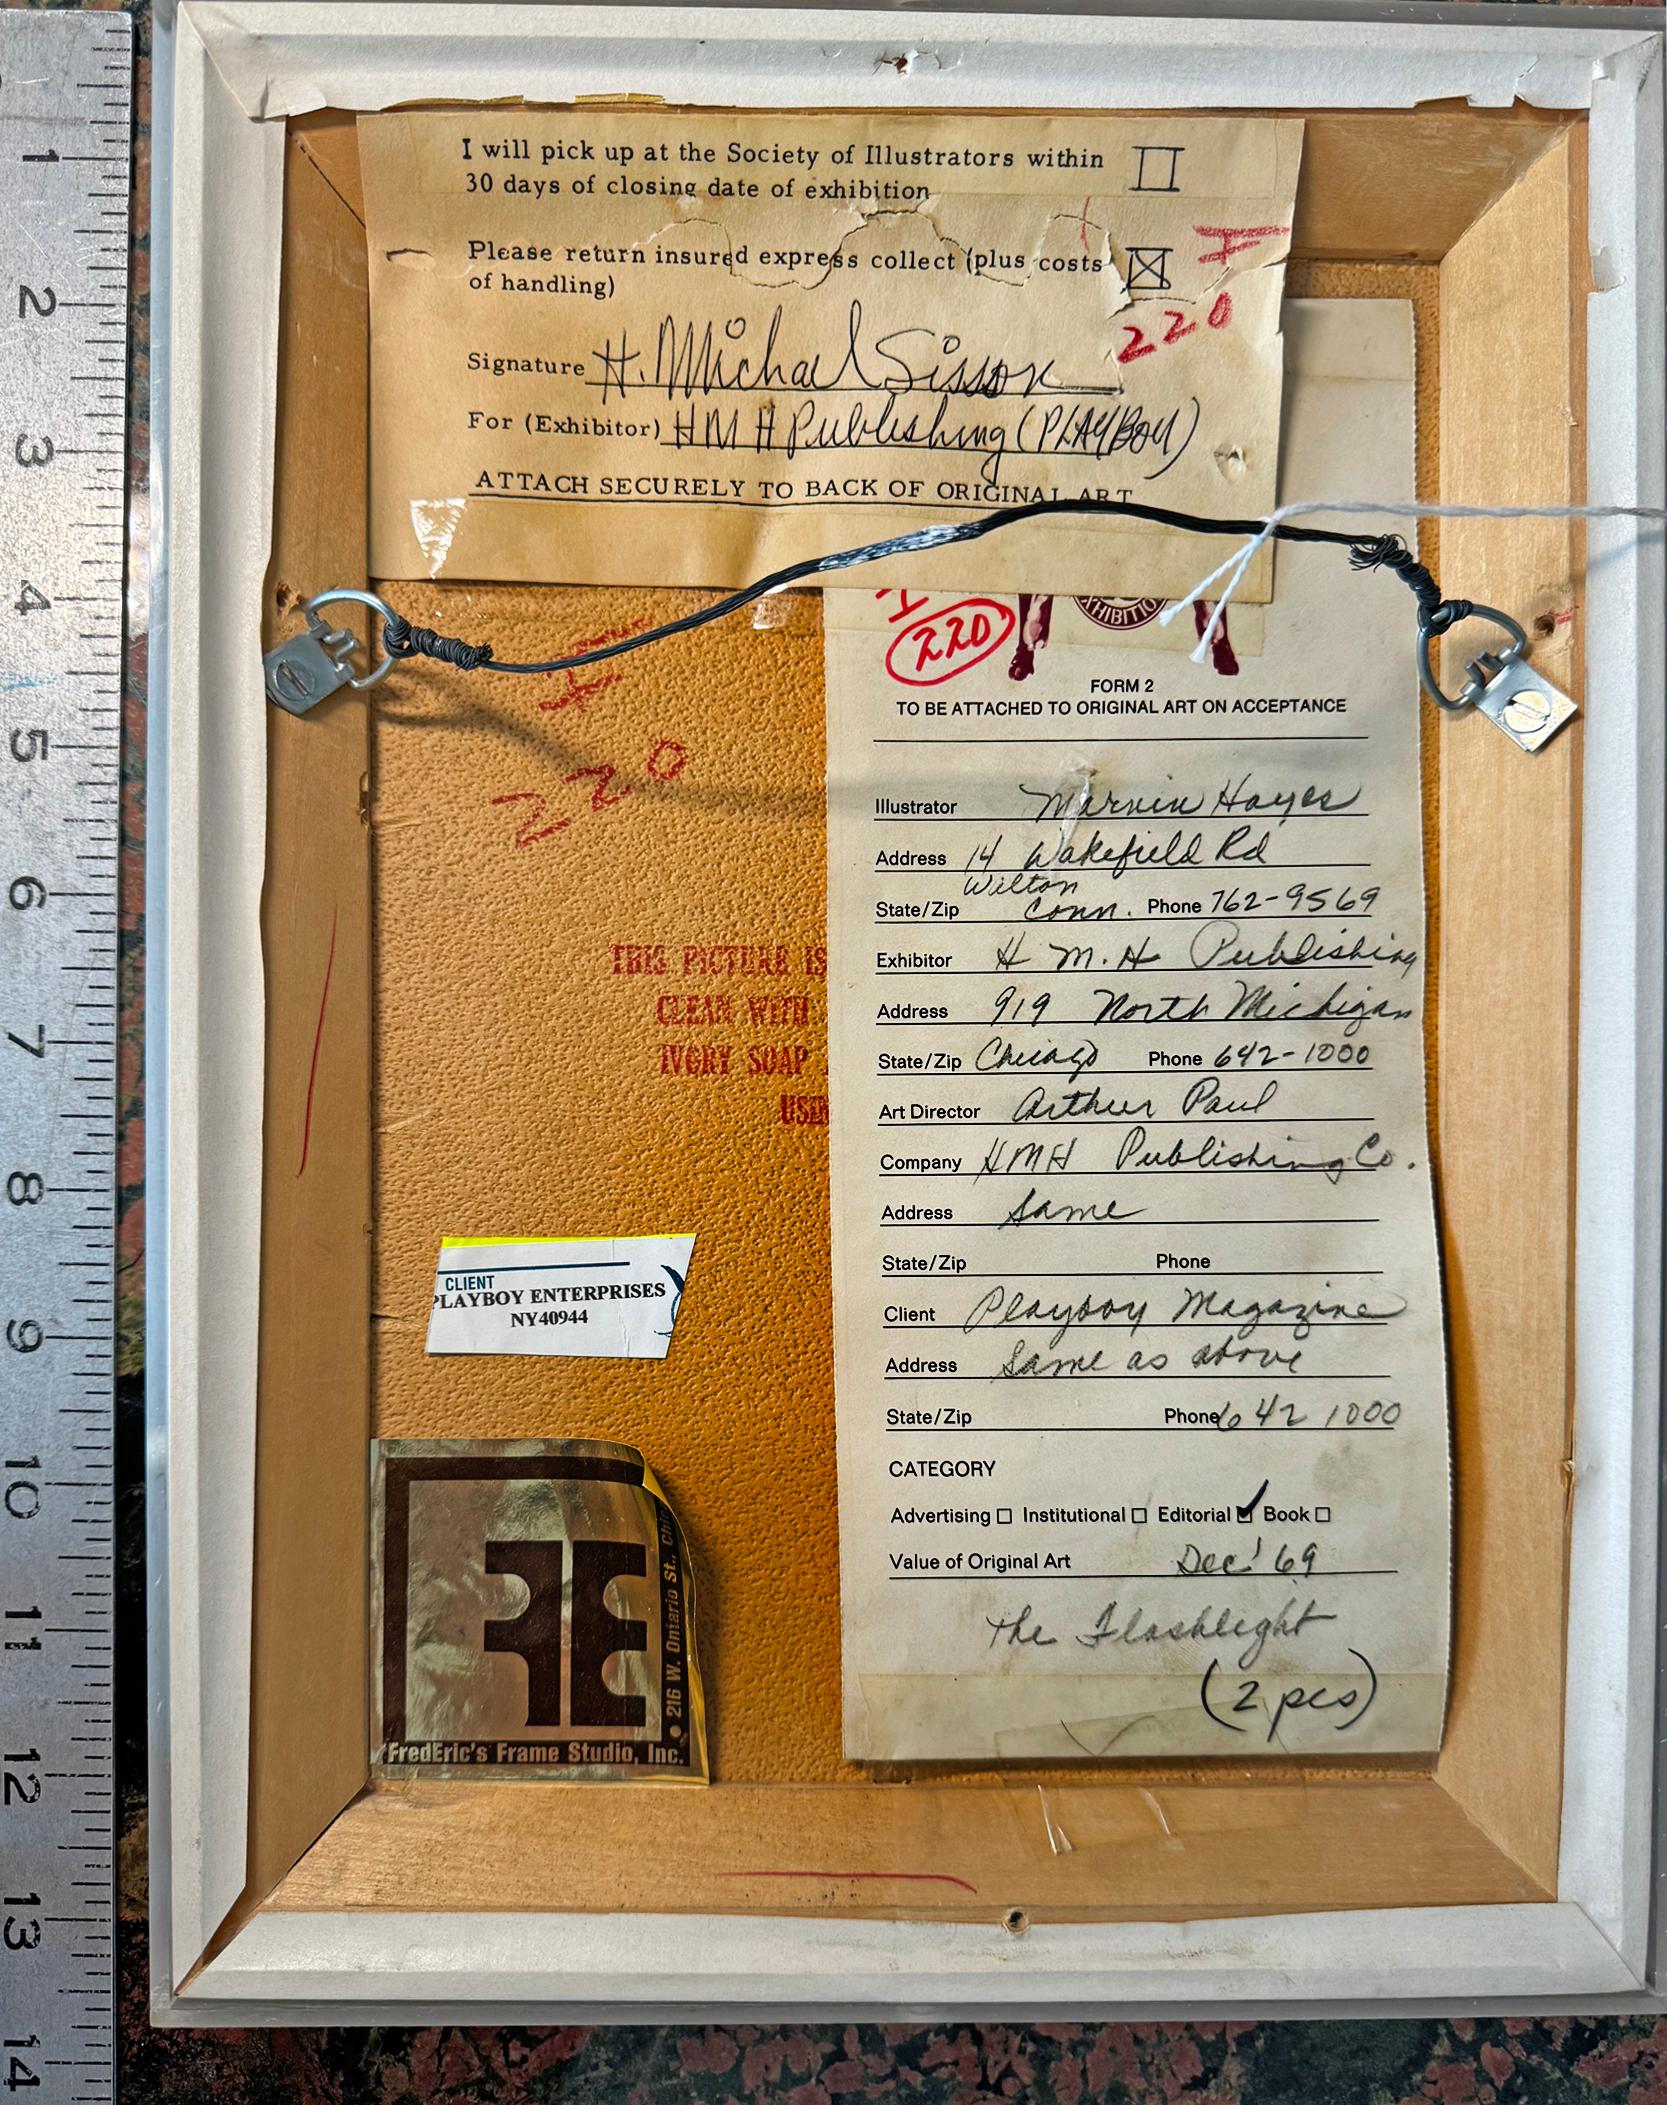 I will pick up at the Society of Illustrators within
30 days of closing date of exhibition
Please return insured express collect (plus costs
of handling)
I
220
Signature H. Michael Sisson
For (Exhibitor) HMH Publishing (PLAYBOY)
ATTACH SECURELY TO BACK OF ORIGINAL ART
I
220
XHIBITIO
I
220
FORM 2
TO BE ATTACHED TO ORIGINAL ART ON ACCEPTANCE
Illustrator Marvin Hayes
Address 14 Wakefield Rd
Wilton
State/Zip Conn. Phone 762-9569
Exhibitor H M.H Publishing
Address 919 North Michigan
State/Zip Chicago Phone 642-1000
Art Director Arthur Paul
Company HMH Publishing Co.
Address Same
State/Zip Phone
Client Playboy Magazine
Address Same as above
State/Zip Phone 642 1000
CATEGORY
Advertising Institutional Editorial Book
Value of Original Art Dec' 69
The Flashlight
(2 pcs)
THIS PICTURE IS
CLEAN WITH
IVORY SOAP
USIN
CLIENT
PLAYBOY ENTERPRISES
NY40944
FE
216 W. Ontario St., Chic
FredEric's Frame Studio, Inc.
1
2
3
4
5
6
7
8
9
10
11
12
13
14